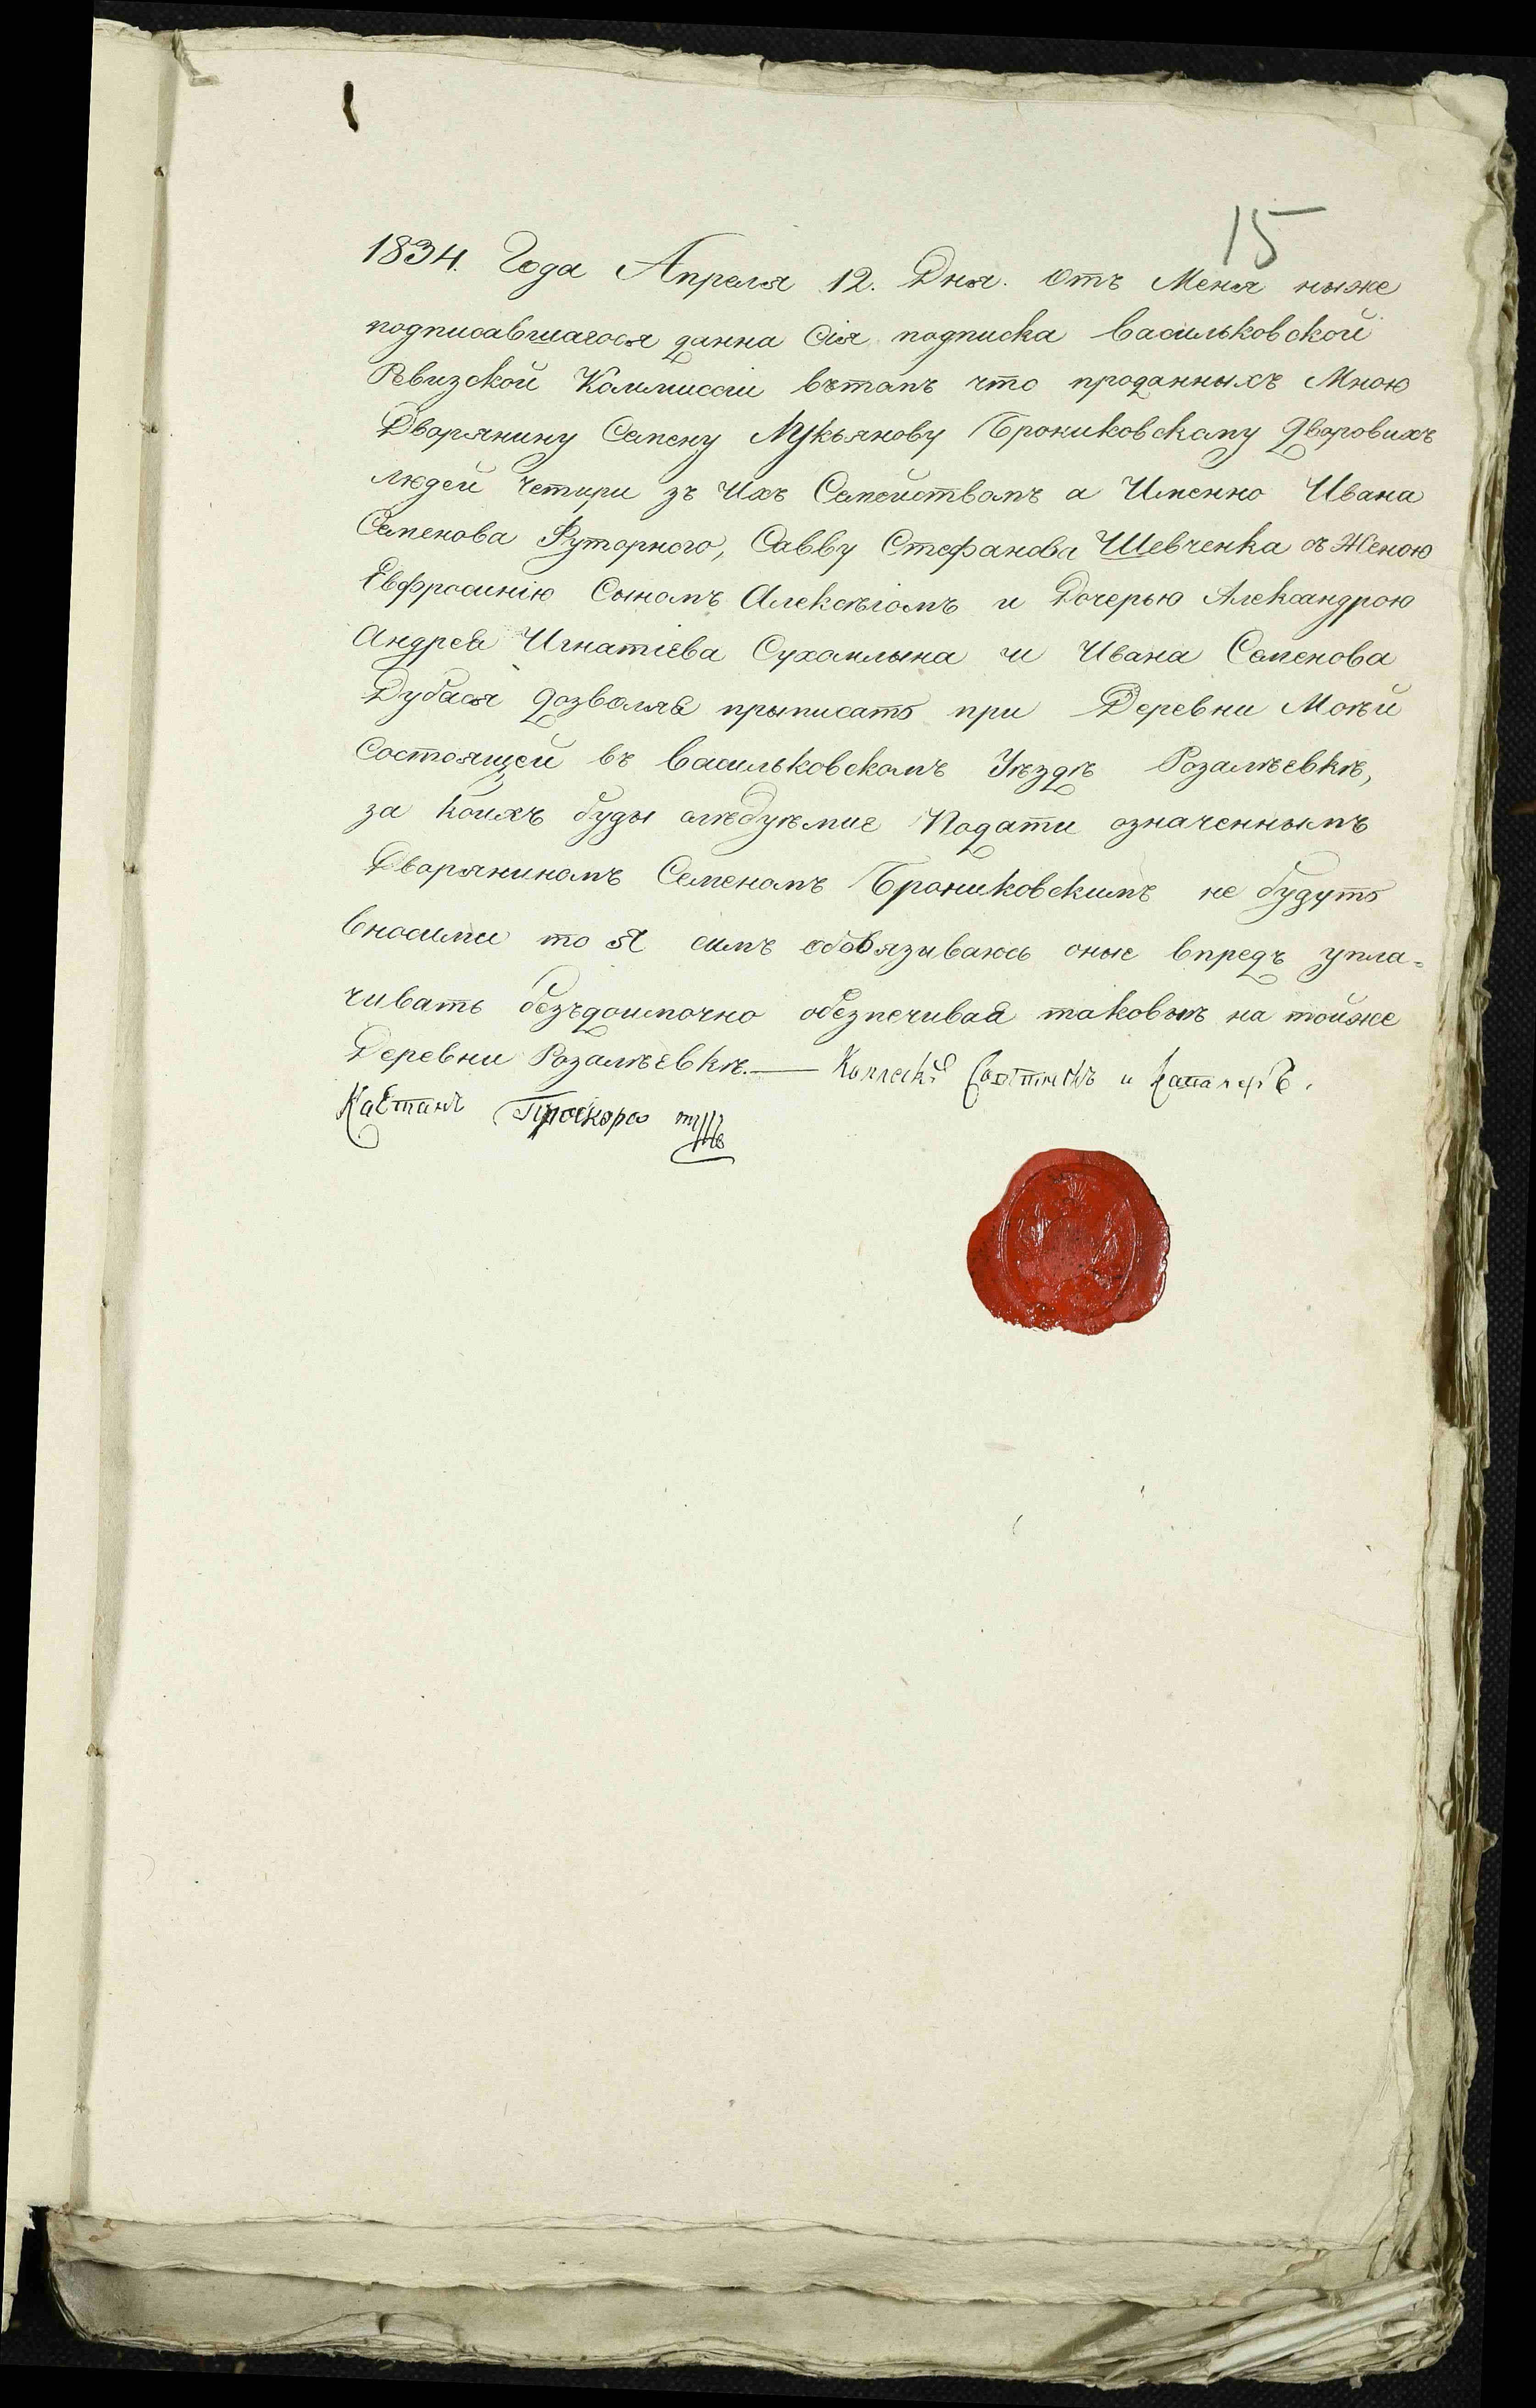 15
1834. Года Апреля 12. Дня. Отъ Меня ныже
подписавшагося данна Сія подписка Васильковской
Ревизской Коммиссіи вътомъ что проданныхъ Мною
Дворянину Семену Лукьянову Брониковскому Дворовихъ
людей Четыри зъ Ихъ Семействомъ а Именно Ивана
Семенова Футорного, Савву Стефанова Шевченка съ Женою
Евфросинію Сыномъ Алексѣіомъ и Дочерью Александрою
Андрея Игнатіева Сухомлына и Ивана Семенова
Дубася дозволяя прыписать при Деревни Моѣй
Состоящей въ Васильковскомъ Уѣздѣ Розалѣевкѣ,
за Коихъ буды слѣдуѣмие Подати означеннымъ
Дворяниномъ Семеномъ Брониковскимъ не будутъ
вносими то Я симъ обовязываюсь оные впредъ упла=
чивать безъдоимочно обезпечивая таковыѣ на тойже
Деревни Розалѣевкѣ.— и Кавалеръ.
Каетанъ Проскура